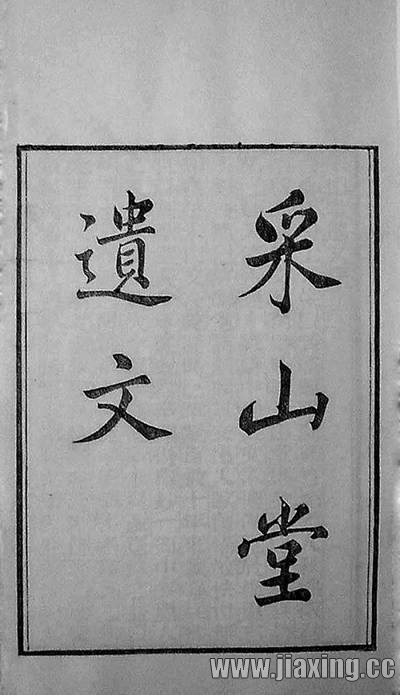 采山堂
遺文
www.jiaxing.cc